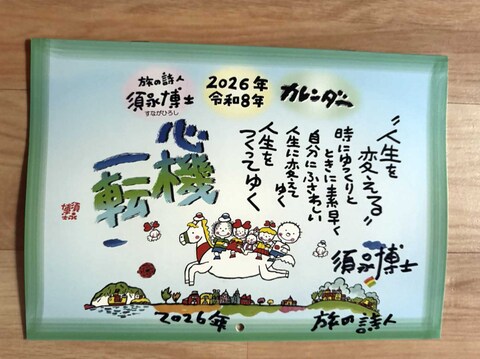 旅の詩人
須永博士
すながひろし
2026年
令和8年
カレンダー
"人生を
変える"
時にゆっくりと
ときに素早く
自分にふさわしい
人生に変えて
ゆく
人生を
つくってゆく
須永博士
心機
一転
2026年
旅の詩人